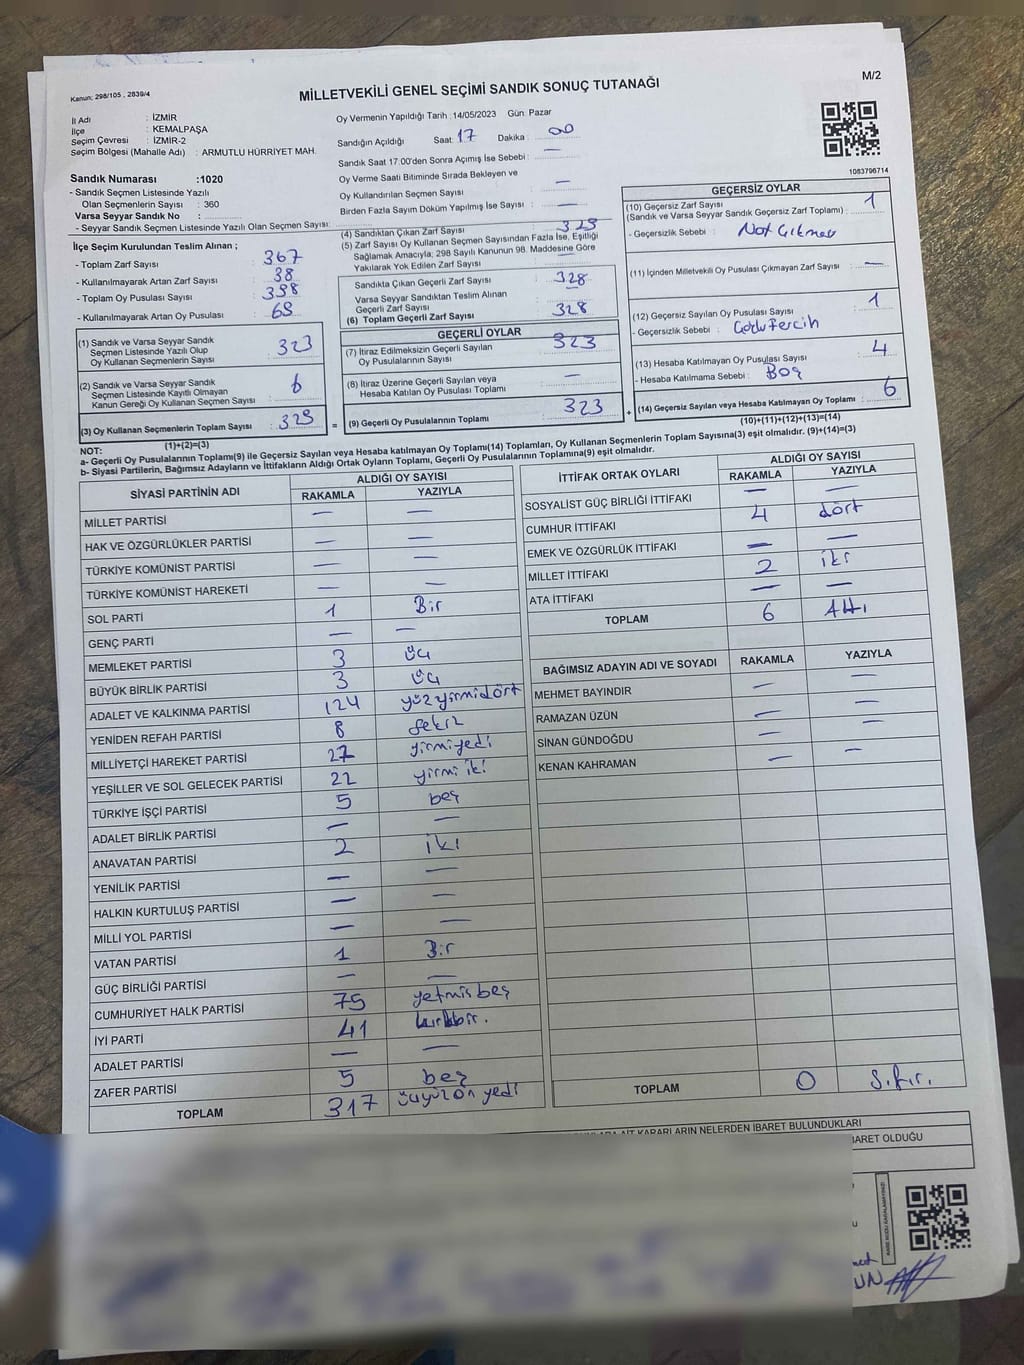 Kanun; 298/105 , 2839/4
MİLLETVEKİLİ GENEL SEÇİMİ SANDIK SONUÇ TUTANAĞI
M/2
İl Adı : İZMİR
İlçe : KEMALPAŞA
Seçim Çevresi : İZMİR-2
Seçim Bölgesi (Mahalle Adı) : ARMUTLU HÜRRİYET MAH.
Oy Vermenin Yapıldığı Tarih :14/05/2023 Gün: Pazar
Sandığın Açıldığı Saat: 17 Dakika : 00
Sandık Saat 17:00'den Sonra Açımış İse Sebebi : —
Oy Verme Saati Bitiminde Sırada Bekleyen ve
Oy Kullandırılan Seçmen Sayısı : —
Birden Fazla Sayım Döküm Yapılmış İse Sayısı : —
1083796714
Sandık Numarası :1020
- Sandık Seçmen Listesinde Yazılı
Olan Seçmenlerin Sayısı : 360
Varsa Seyyar Sandık No :
- Seyyar Sandık Seçmen Listesinde Yazılı Olan Seçmen Sayısı:
İlçe Seçim Kurulundan Teslim Alınan ;
- Toplam Zarf Sayısı : 367
- Kullanılmayarak Artan Zarf Sayısı : 38
- Toplam Oy Pusulası Sayısı : 398
- Kullanılmayarak Artan Oy Pusulası : 69
(1) Sandık ve Varsa Seyyar Sandık
Seçmen Listesinde Yazılı Olup
Oy Kullanan Seçmenlerin Sayısı : 323
(2) Sandık ve Varsa Seyyar Sandık
Seçmen Listesinde Kayıtlı Olmayan
Kanun Gereği Oy Kullanan Seçmen Sayısı : 6
(3) Oy Kullanan Seçmenlerin Toplam Sayısı : 329
(1)+(2)=(3)
(4) Sandıktan Çıkan Zarf Sayısı : 329
(5) Zarf Sayısı Oy Kullanan Seçmen Sayısından Fazla İse, Eşitliği
Sağlamak Amacıyla; 298 Sayılı Kanunun 98. Maddesine Göre
Yakılarak Yok Edilen Zarf Sayısı : —
Sandıkta Çıkan Geçerli Zarf Sayısı : 328
Varsa Seyyar Sandıktan Teslim Alınan
Geçerli Zarf Sayısı : —
(6) Toplam Geçerli Zarf Sayısı : 328
GEÇERLİ OYLAR
(7) İtiraz Edilmeksizin Geçerli Sayılan
Oy Pusulalarının Sayısı : 323
(8) İtiraz Üzerine Geçerli Sayılan veya
Hesaba Katılan Oy Pusulası Toplamı : —
(9) Geçerli Oy Pusulalarının Toplamı : 323
GEÇERSİZ OYLAR
(10) Geçersiz Zarf Sayısı
(Sandık ve Varsa Seyyar Sandık Geçersiz Zarf Toplamı) : 1
- Geçersizlik Sebebi : Not Çıkması
(11) İçinden Milletvekili Oy Pusulası Çıkmayan Zarf Sayısı : —
(12) Geçersiz Sayılan Oy Pusulası Sayısı : 1
- Geçersizlik Sebebi : Çoklu Tercih
(13) Hesaba Katılmayan Oy Pusulası Sayısı : 4
- Hesaba Katılmama Sebebi : Boş
(14) Geçersiz Sayılan veya Hesaba Katılmayan Oy Toplamı : 6
(10)+(11)+(12)+(13)=(14)
NOT:
a- Geçerli Oy Pusulalarının Toplamı(9) ile Geçersiz Sayılan veya Hesaba katılmayan Oy Toplamı(14) Toplamları, Oy Kullanan Seçmenlerin Toplam Sayısına(3) eşit olmalıdır. (9)+(14)=(3)
b- Siyasi Partilerin, Bağımsız Adayların ve İttifakların Aldığı Ortak Oyların Toplamı, Geçerli Oy Pusulalarının Toplamına(9) eşit olmalıdır.
SİYASİ PARTİNİN ADI ALDIĞI OY SAYISI
RAKAMLA YAZIYLA
MİLLET PARTİSİ — —
HAK VE ÖZGÜRLÜKLER PARTİSİ — —
TÜRKİYE KOMÜNİST PARTİSİ — —
TÜRKİYE KOMÜNİST HAREKETİ — —
SOL PARTİ 1 Bir
GENÇ PARTİ — —
MEMLEKET PARTİSİ 3 üç
BÜYÜK BİRLİK PARTİSİ 3 üç
ADALET VE KALKINMA PARTİSİ 124 yüzyirmidört
YENİDEN REFAH PARTİSİ 8 sekiz
MİLLİYETÇİ HAREKET PARTİSİ 27 yirmiyedi
YEŞİLLER VE SOL GELECEK PARTİSİ 22 yirmi iki
TÜRKİYE İŞÇİ PARTİSİ 5 beş
ADALET BİRLİK PARTİSİ — —
ANAVATAN PARTİSİ 2 iki
YENİLİK PARTİSİ — —
HALKIN KURTULUŞ PARTİSİ — —
MİLLİ YOL PARTİSİ — —
VATAN PARTİSİ 1 Bir
GÜÇ BİRLİĞİ PARTİSİ — —
CUMHURİYET HALK PARTİSİ 75 yetmiş beş
İYİ PARTİ 41 kırkbir.
ADALET PARTİSİ — —
ZAFER PARTİSİ 5 beş
TOPLAM 317 üçyüz on yedi
İTTİFAK ORTAK OYLARI ALDIĞI OY SAYISI
RAKAMLA YAZIYLA
SOSYALİST GÜÇ BİRLİĞİ İTTİFAKI — —
CUMHUR İTTİFAKI 4 dört
EMEK VE ÖZGÜRLÜK İTTİFAKI — —
MİLLET İTTİFAKI 2 iki
ATA İTTİFAKI — —
TOPLAM 6 Altı
BAĞIMSIZ ADAYIN ADI VE SOYADI RAKAMLA YAZIYLA
MEHMET BAYINDIR — —
RAMAZAN ÜZÜN — —
SİNAN GÜNDOĞDU — —
KENAN KAHRAMAN — —
TOPLAM 0 Sıfır.
AİT KARARLARIN NELERDEN İBARET BULUNDUKLARI
BARET OLDUĞU